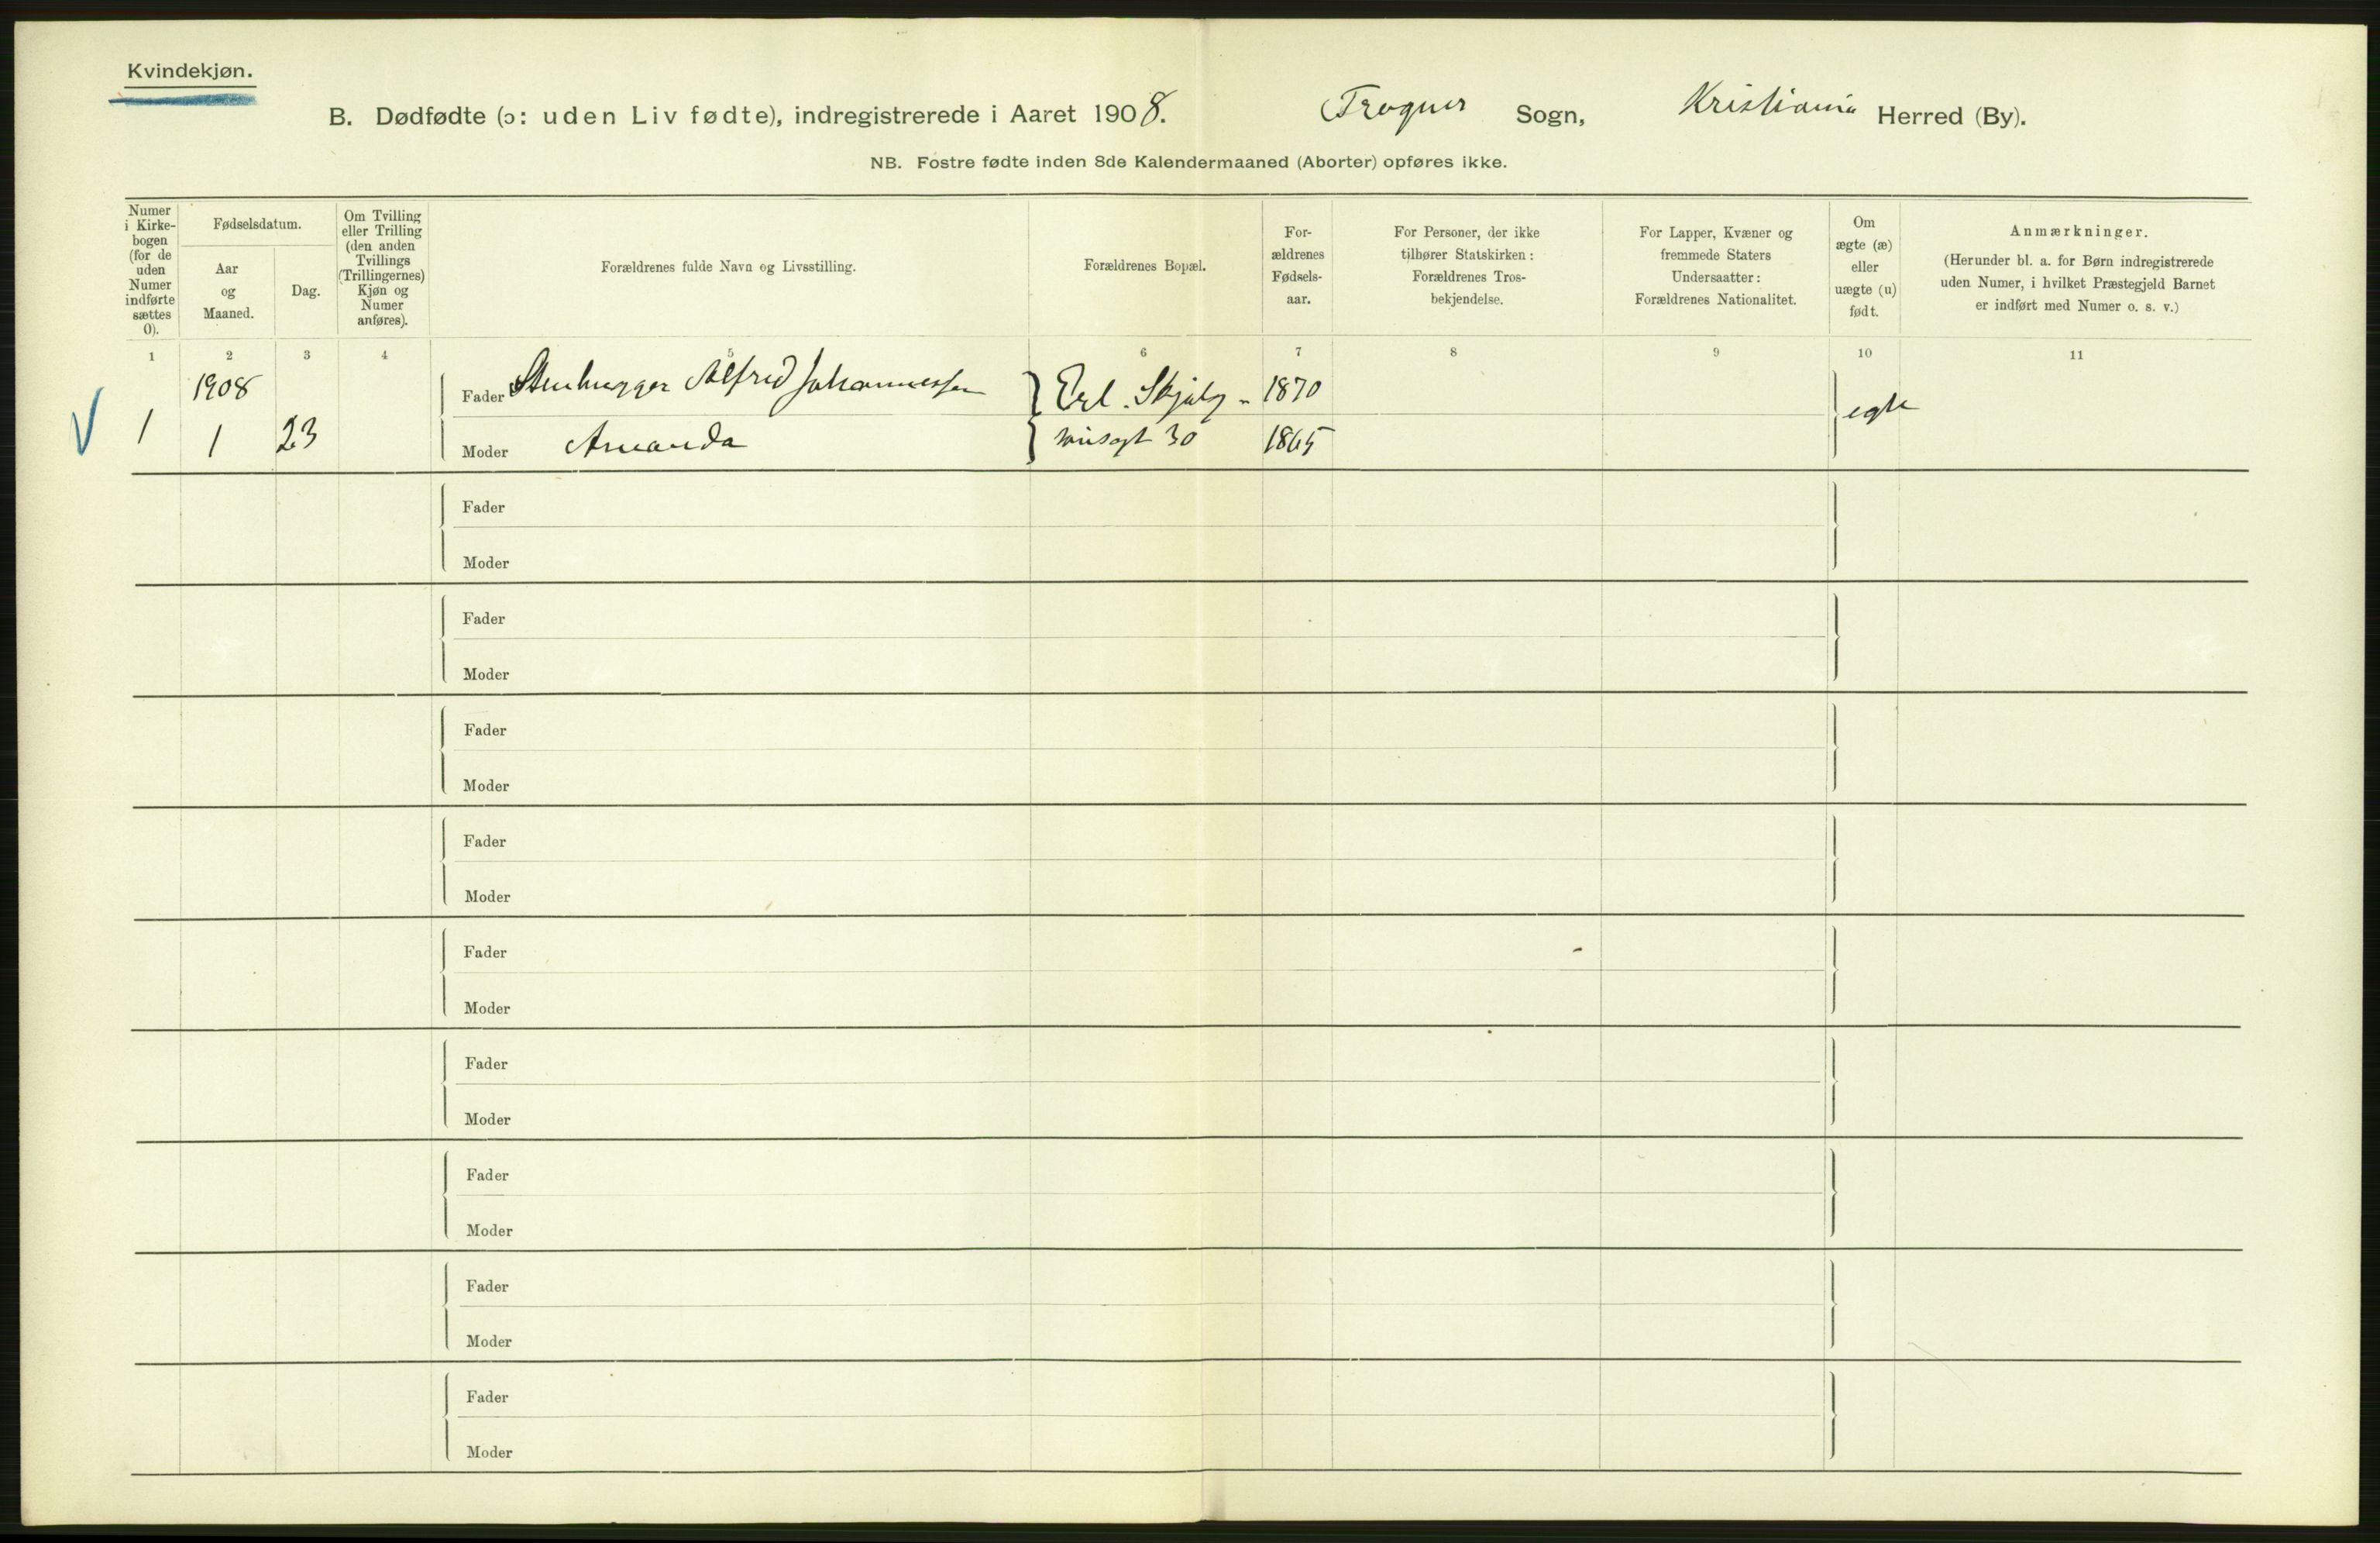 Kvindekjøn.
B. Dødfødte (ɔ: uden Liv fødte), indregistrerede i Aaret 1908. Frogner Sogn, Kristiania Herred (By).
NB. Fostre fødte inden 8de Kalendermaaned (Aborter) opføres ikke.
Numer
i Kirke-
bogen
(for de
uden
Numer
indførte
sættes
0).
Fødselsdatum.
Aar
og
Maaned.
Dag.
Om Tvilling
eller Trilling
(den anden
Tvillings
(Trillingernes)
Kjøn og
Numer
anføres).
Forældrenes fulde Navn og Livsstilling.
Forældrenes Bopæl.
For-
ældrenes
Fødsels-
aar.
For Personer, der ikke
tilhører Statskirken:
Forældrenes Tros-
bekjendelse.
For Lapper, Kvæner og
fremmede Staters
Undersaatter:
Forældrenes Nationalitet.
Om
ægte (æ)
eller
uægte (u)
født.
Anmærkninger.
(Herunder bl. a. for Børn indregistrerede
uden Numer, i hvilket Præstegjeld Barnet
er indført med Numer o. s. v.)
1 2 3 4 5 6 7 8 9 10 11
1908 Fader Stenhugger Alfred Johannessen 1870 egte
1 1 23 Moder Amanda 30 1865
Fader
Moder
Fader
Moder
Fader
Moder
Fader
Moder
Fader
Moder
Fader
Moder
Fader
Moder
Fader
Moder
Fader
Moder